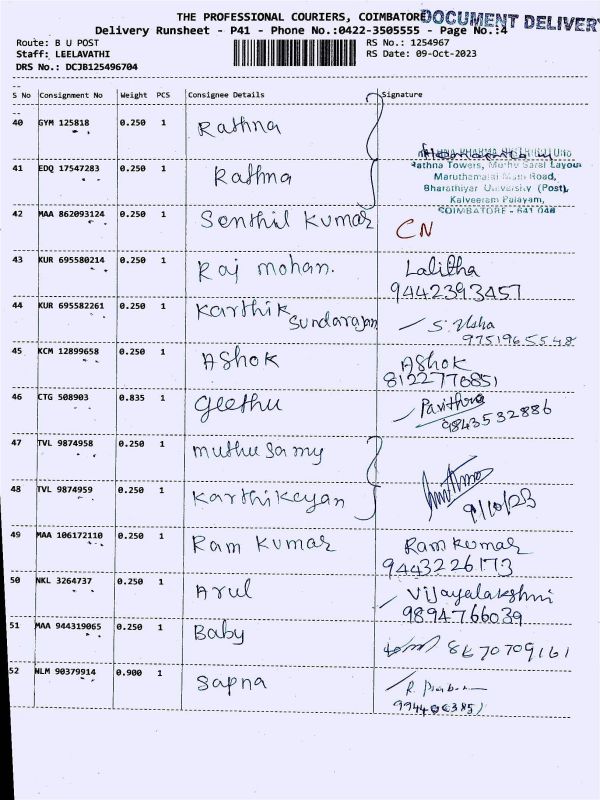 THE PROFESSIONAL COURIERS, COIMBATORE
DOCUMENT DELIVERY
Delivery Runsheet - P41 - Phone No.:0422-3505555 - Page No.:4
Route: B U POST
RS No.: 1254967
Staff: LEELAVATHI
RS Date: 09-Oct-2023
DRS No.: DCJB125496704
S No Consignment No Weight PCS Consignee Details Signature
40 GYM 125818 0.250 1 Rathna
41 EDQ 17547283 0.250 1 Rathna
Rathna Towers, Muthu Layout
Maruthamalai Main Road,
Bharathiyar University (Post),
Kalveeram Palayam,
COIMBATORE - 641 046
42 MAA 862093124 0.250 1 Senthil Kumar CN
43 KUR 695580214 0.250 1 Raj mohan. Lalitha
9442393457
44 KUR 695582261 0.250 1 Karthik
Sundarajan S. Usha
9751965548
45 KCM 12899658 0.250 1 Ashok Ashok
8122776851
46 CTG 508903 0.835 1 Geethu Pavithra
9843532886
47 TVL 9874958 0.250 1 muthu Samy
48 TVL 9874959 0.250 1 Karthikeyan
9/10/23
49 MAA 106172110 0.250 1 Ram Kumar Ram Kumar
9443226173
50 NKL 3264737 0.250 1 Arul Vijayalakshmi
9894766039
51 MAA 944319065 0.250 1 Baby 8670709161
52 NLM 90379914 0.900 1 Sapna